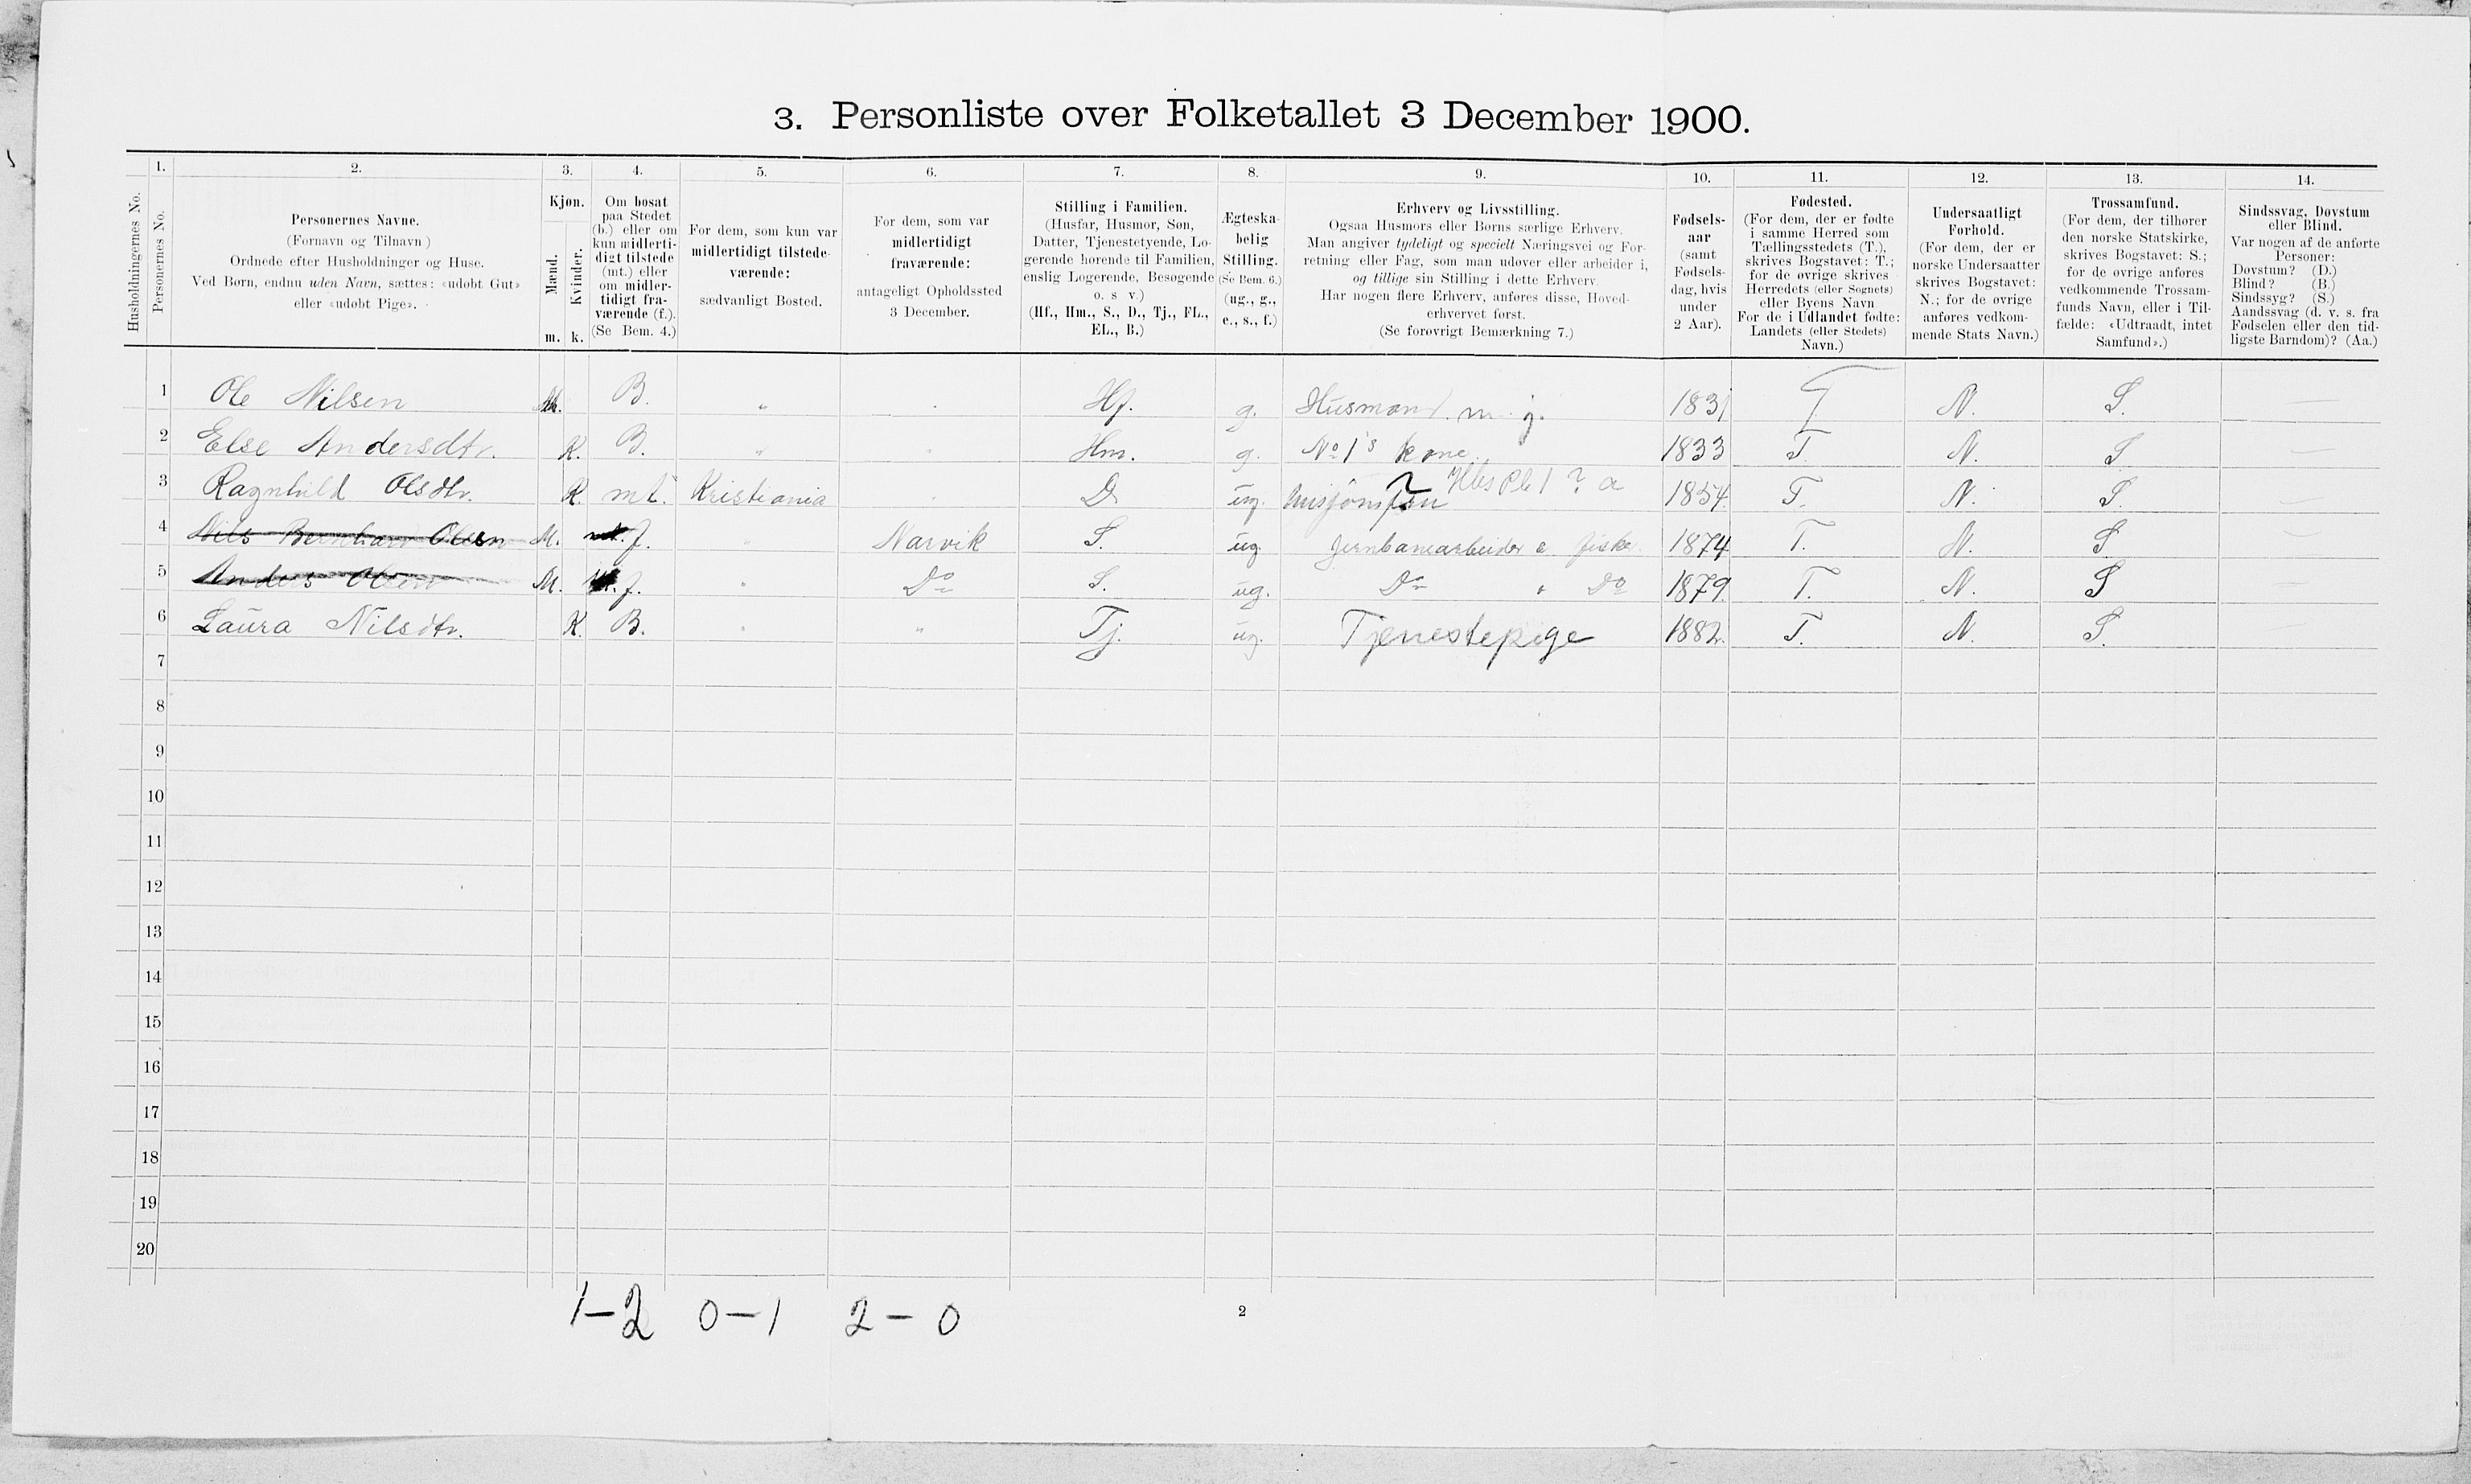 3. Personliste over Folketallet 3 December 1900.
1. 2. 3. 4. 5. 6. 7. 8. 9. 10. 11. 12. 13. 14.
Husholdningernes No.
Personernes No.
Personernes Navne.
(Fornavn og Tilnavn)
Ordnede efter Husholdninger og Huse.
Ved Børn, endnu uden Navn, sættes: «udøbt Gut»
eller «udøbt Pige».
Kjøn.
Mænd.
Kvinder.
m. k.
Om bosat
paa Stedet
(b.) eller om
kun midlerti-
digt tilstede
(mt.) eller
om midler-
tidigt fra-
værende (f.).
(Se Bem. 4.)
For dem, som kun var
midlertidigt tilstede-
værende:
sædvanligt Bosted.
For dem, som var
midlertidigt
fraværende:
antageligt Opholdssted
3 December.
Stilling i Familien.
(Husfar, Husmor, Søn,
Datter, Tjenestetyende, Lo-
gerende hørende til Familien,
enslig Logerende, Besøgende
o. s v.)
(Hf., Hm., S., D., Tj., FL.,
EL., B.)
Ægteska-
belig
Stilling.
(Se Bem. 6.)
(ug., g.,
e., s., f.)
Erhverv og Livsstilling.
Ogsaa Husmors eller Børns særlige Erhverv.
Man angiver tydeligt og specielt Næringsvei og For-
retning eller Fag, som man udøver eller arbeider i,
og tillige sin Stilling i dette Erhverv.
Har nogen flere Erhverv, anføres disse, Hoved-
erhvervet først.
(Se forøvrigt Bemærkning 7.)
Fødsels-
aar
(samt
Fødsels-
dag, hvis
under
2 Aar).
Fødested.
(For dem, der er fødte
i samme Herred som
Tællingsstedets (T.),
skrives Bogstavet: T.;
for de øvrige skrives
Herredets (eller Sognets)
eller Byens Navn.
For de i Udlandet fødte:
Landets (eller Stedets)
Navn.)
Undersaatligt
Forhold.
(For dem, der er
norske Undersaatter
skrives Bogstavet:
N.; for de øvrige
anføres vedkom-
mende Stats Navn.)
Trossamfund.
(For dem, der tilhører
den norske Statskirke,
skrives Bogstavet: S.;
for de øvrige anføres
vedkommende Trossam-
funds Navn, eller i Til-
fælde: «Udtraadt, intet
Samfund».)
Sindssvag, Døvstum
eller Blind.
Var nogen af de anførte
Personer:
Døvstum? (D.)
Blind? (B.)
Sindssyg? (S.)
Aandssvag (d. v. s. fra
Fødselen eller den tid-
ligste Barndom)? (Aa.)
1 Ole Nilsen M. B. " Hf. g. Husmand m. j. 1831 T N. S. —
2 Else Andersdtr. K. B. " " Hm. g. No 1's kone. 1833 T. N. S —
3 Ragnhild Olsdtr. K. mt. Kristiania D. ug. 1854 T. N. S. —
4 Nils Bernhard Olsen M. f. " Narvik S. ug. Jernbanearbeider & fisker. 1874 T. N. S —
5 Anders Olsen M. f. " Do S. ug. Do " Do 1879. T. N. S —
6 Laura Nilsdtr. K. B. " " Tj. ug. Tjenestepige 1882. T. N. S. —
7
8
9
10
11
12
13
14
15
16
17
18
19
20
1 – 2 0 – 1 2 – 0
2